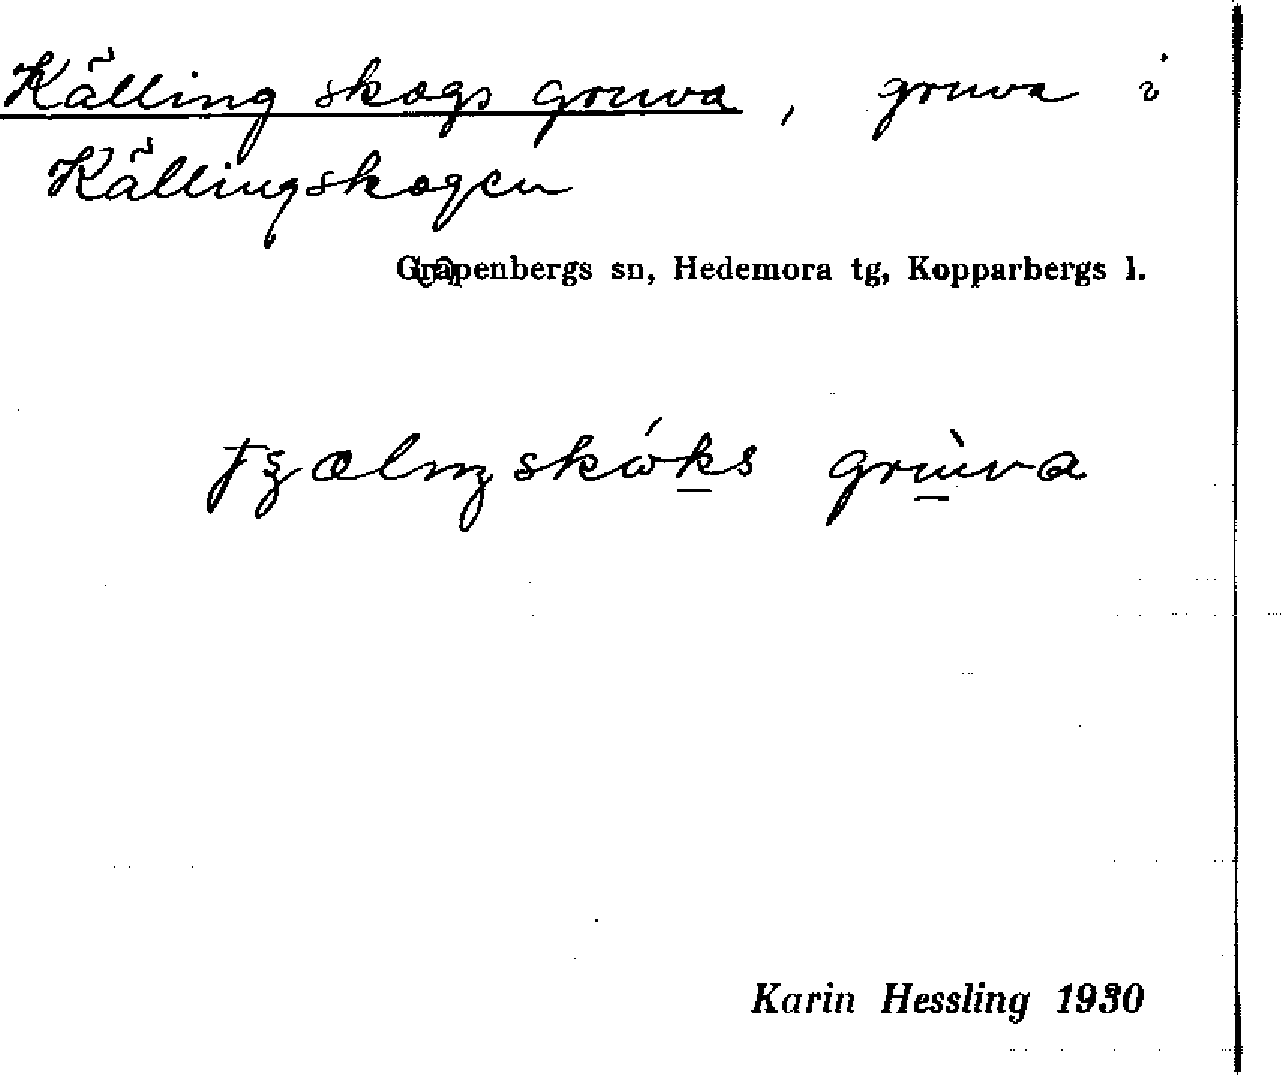 Källing skogs gruva, gruva i
Källingskogen
Garpenbergs sn, Hedemora tg, Kopparbergs l.
gruva
Karin Hessling 1930